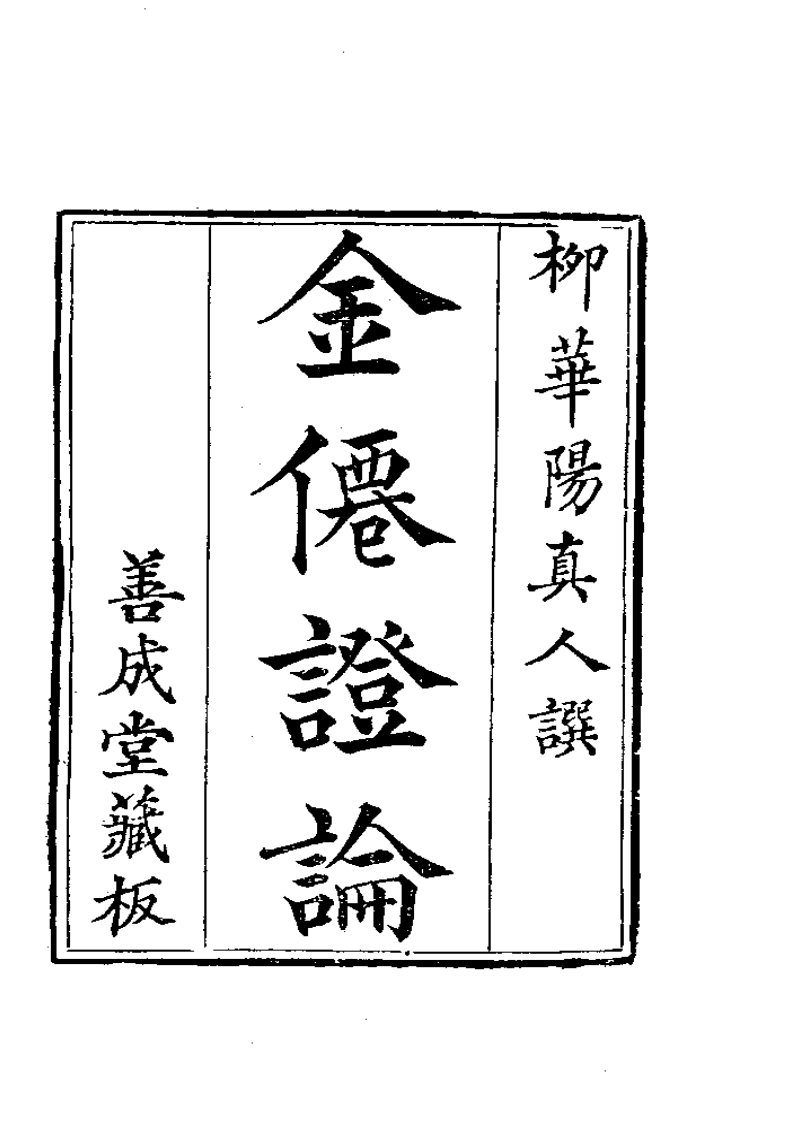 柳華陽真人譔
金僊證論
善成堂藏板